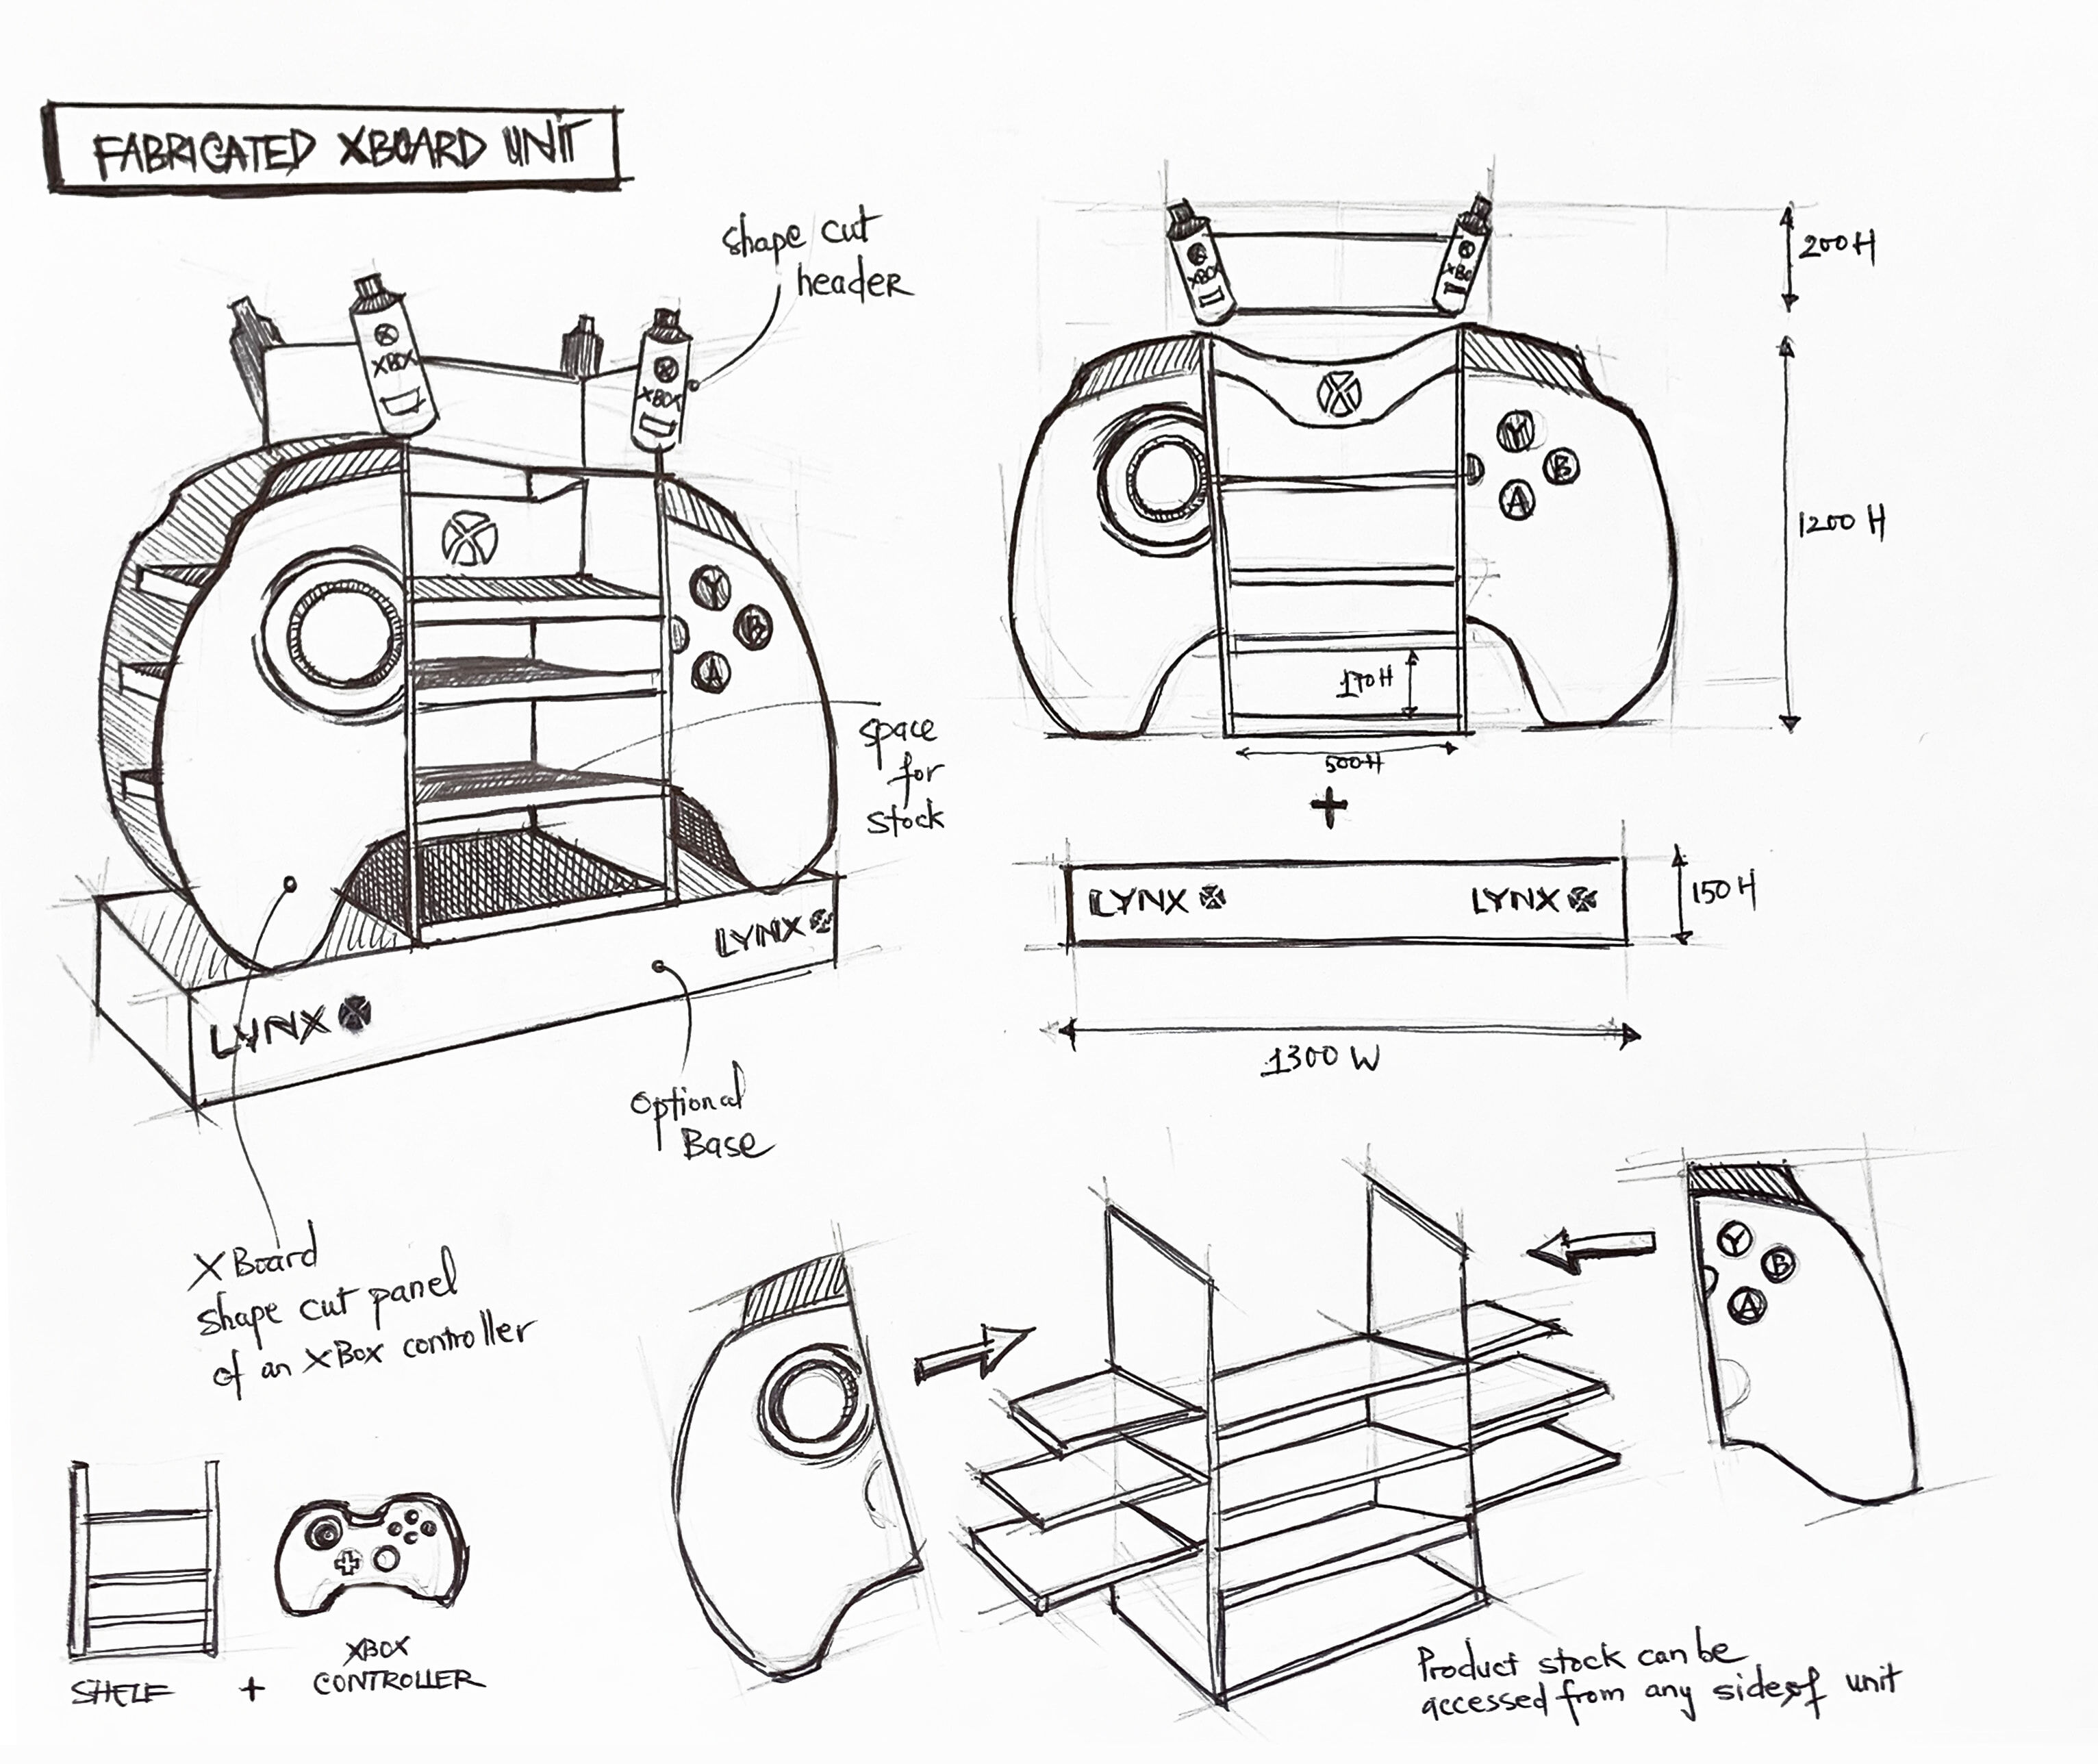 FABRICATED XBOARD UNIT
shape cut
header
XBOX
XBOX
Y
B
A
space
for
stock
LYNX
LYNX
Optional
Base
XBoard
shape cut panel
of an XBox controller
XBOX
XBO
200H
Y
B
A
1200 H
170H
500H
+
LYNX
LYNX
150H
1300 W
Y
B
A
SHELF + XBOX CONTROLLER
Product stock can be
accessed from any side of unit